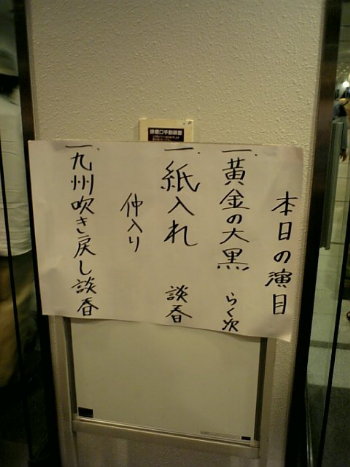 本日の演目
一、黄金の大黒 らく次
一、紙入れ 談春
仲入り
一、九州吹き戻し 談春